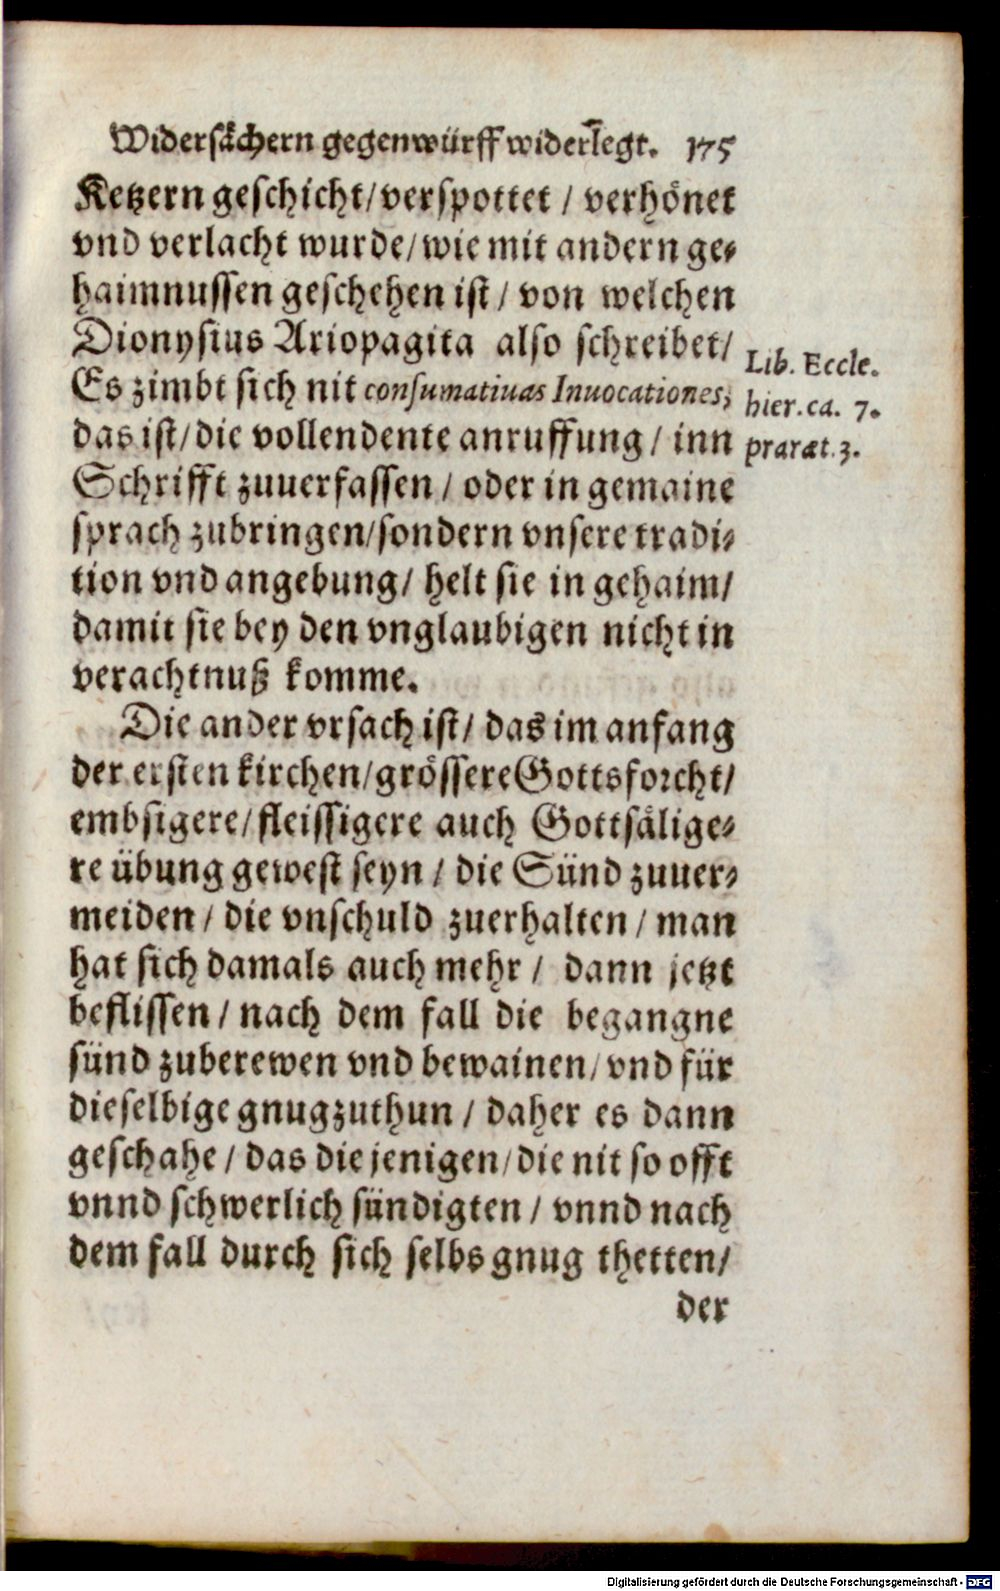 Widersächern gegenwürff widerlegt. 175
Ketzern geschicht/verspottet / verhönet
vnd verlacht wurde/wie mit andern ge-
haimnussen geschehen ist / von welchen
Dionysius Ariopagita also schreibet/
Lib. Eccle.
Es zimbt sich nit consumatiuas Inuocationes,
hier. ca. 7.
das ist/die vollendente anruffung / inn
pararæt. 3.
Schrifft zuuerfassen / oder in gemaine
sprach zubringen/sondern vnsere tradi-
tion vnd angebung/ helt sie in gehaim/
damit sie bey den vnglaubigen nicht in
verachtnuß komme.
Die ander vrsach ist/ das im anfang
der ersten kirchen/grössere Gottsforcht/
embsigere/fleissigere auch Gottsälige-
re übung gewest seyn / die Sünd zuuer-
meiden / die vnschuld zuerhalten / man
hat sich damals auch mehr / dann jetzt
beflissen / nach dem fall die begangne
sünd zuberewen vnd bewainen/vnd für
dieselbige gnugzuthun / daher es dann
geschahe / das die jenigen/die nit so offt
vnnd schwerlich sündigten / vnnd nach
dem fall durch sich selbs gnug thetten/
der
Digitalisierung gefördert durch die Deutsche Forschungsgemeinschaft - DFG